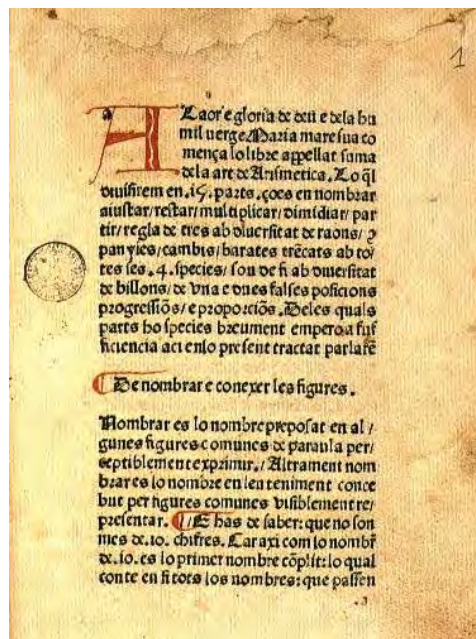 1
A Laor e gloria de deu e dela hu
mil verge Maria mare sua co
mença lo libre appellat suma
dela art de Arismetica. Lo q̄l
diuisirem en .15. parts. çoes en nombrar
aiustar/ restar/ multiplicar/ dimidiar/ par
tir/ regla de tres ab diuersitat de raons/ ꝯ
panyies/ cambis/ barates trēcats ab to/
tes ses .4. species/ sou de fi ab diuersitat
de billons/ de vna e dues falses posicions
progressiōs/ e proporciōs. Deles quals
parts ho species breument empero a suf
ficiencia aci enlo present tractat parlarē
De nombrar e conexer les figures.
Nombrar es lo nombre preposat en al/
gunes figures comunes de paraula per/
septiblement exprimir./ Altrament nom
brar es lo nombre en len teniment conce
but per figures comunes visiblement re/
presentar. /E has de saber: que no son
mes de .10. chifres. Car axi com lo nombr̄
de .10. es lo primer nombre cōplit: lo qual
conte en si tots los nombres: que passen